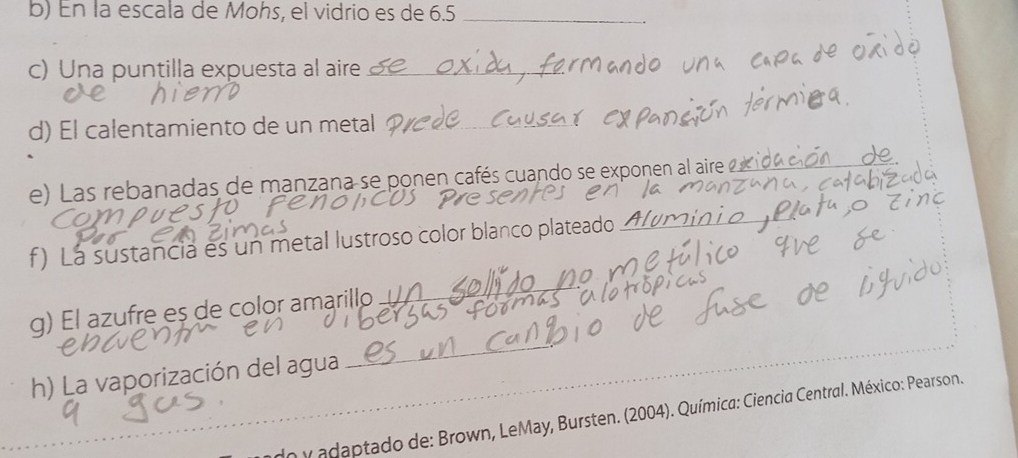 b) En la escala de Mohs, el vidrio es de 6.5
c) Una puntilla expuesta al aire se oxida, formando una capa de oxido
de hierro
d) El calentamiento de un metal Prede causar expansión térmica.
e) Las rebanadas de manzana se ponen cafés cuando se exponen al aire oxidación de
compuesto Fenolicos Presentes en la manzana, catabizada
Por enzimas
f) La sustancia es un metal lustroso color blanco plateado Aluminio, Plata, o zinc
g) El azufre es de color amarillo un sollido no metálico que se
encuentra en dibersas foormas alotrópicas
h) La vaporización del agua es un canbio de fase de liquido
a gas.
y adaptado de: Brown, LeMay, Bursten. (2004). Química: Ciencia Central. México: Pearson.